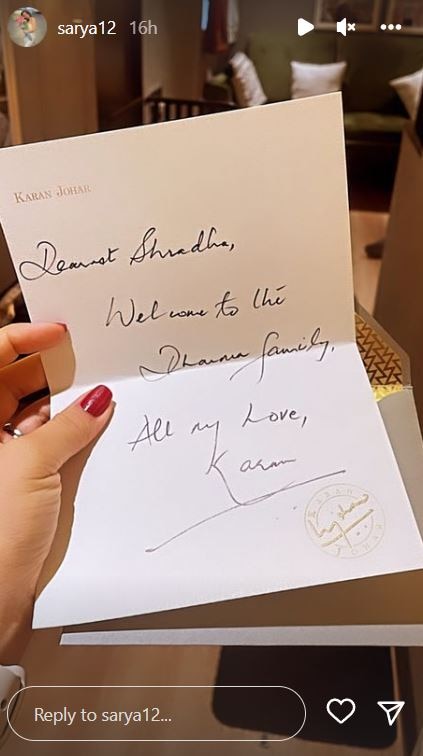 sarya12 16h
KARAN JOHAR
Dearest Shradha,
Welcome to the
Dharma family.
All my Love,
Karan
KARAN
JOHAR
Reply to sarya12...